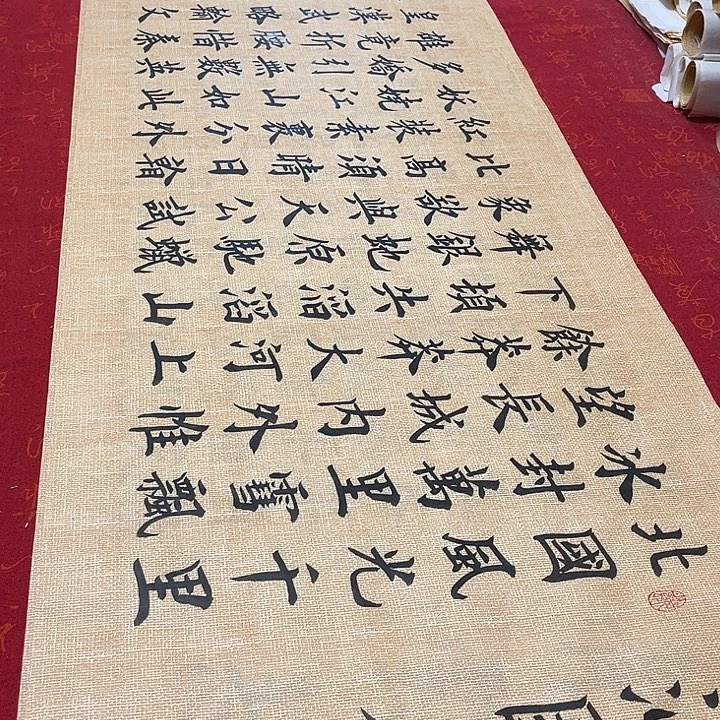 北國風光千里
冰封萬里雪飄
望長城內外惟
餘莽莽大河上
下頓失滔滔山
舞銀蛇原馳蠟
象欲與天公試
比高須晴日
紅裝素裹分外
妖嬈江山如此
多嬌引無數英
雄競折腰惜秦
皇漢武略輸文